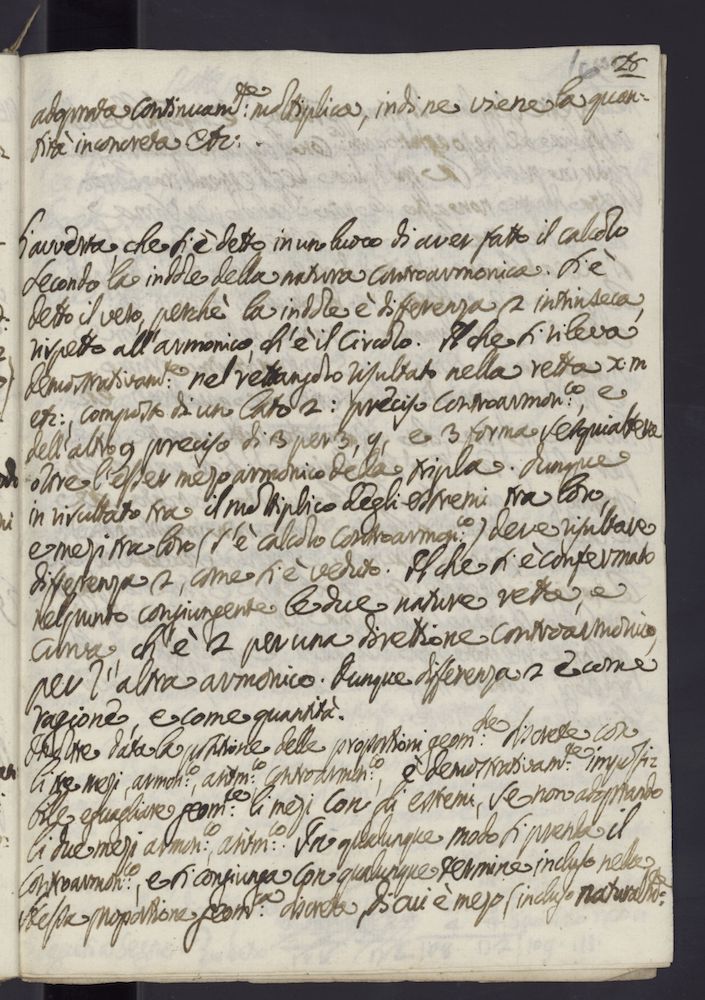 28
adoprata continuam.te moltiplica, indi ne viene la quan-
tità inconcreta etc:
Si avverta, che si è detto in un luoco di aver fatto il calcolo
secondo la indole della natura controarmonica. Si è
detto il vero, perchè la indole è differenza 2 intrinseca
rispetto all'armonico, ch'è il Circolo. Il che si rileva
demostrativam.te nel rettangolo risultato nella retta x m
etc:, composto di un lato 2: preciso controarmon.co, e
dell'altro 9 preciso di 3 per 3, 9, e 3 forma sesquialtera
oltre l'esser mezo armonico della tripla. Dunque
in risultato tra il moltiplico degli estremi tra loro,
e mezi tra loro (s'è calcolo controarmon.co) deve risultare
differenza 2, come si è veduto. Il che si è confermato
nel punto congiungente le due nature retta, e
curva ch'è 2 per una direttione controarmonico,
per l'altra armonico. Dunque differenza 2 è come
ragione, e come quantità.
Inoltre data la positione delle proportioni geom.che discrete con
li tre mezi, armon.co, aritm.co, controarmon.co, è demostrativam.te impossi-
bile eguagliare geom.te li mezi con gli estremi, se non adoprando
li due mezi armon.co, aritm.co. In qualunque modo si prenda il
controarmon.co, e si congiunga con qualunque termine incluso nella
stessa proportione geom.ca discreta, di cui è mezo (incluso natural.te